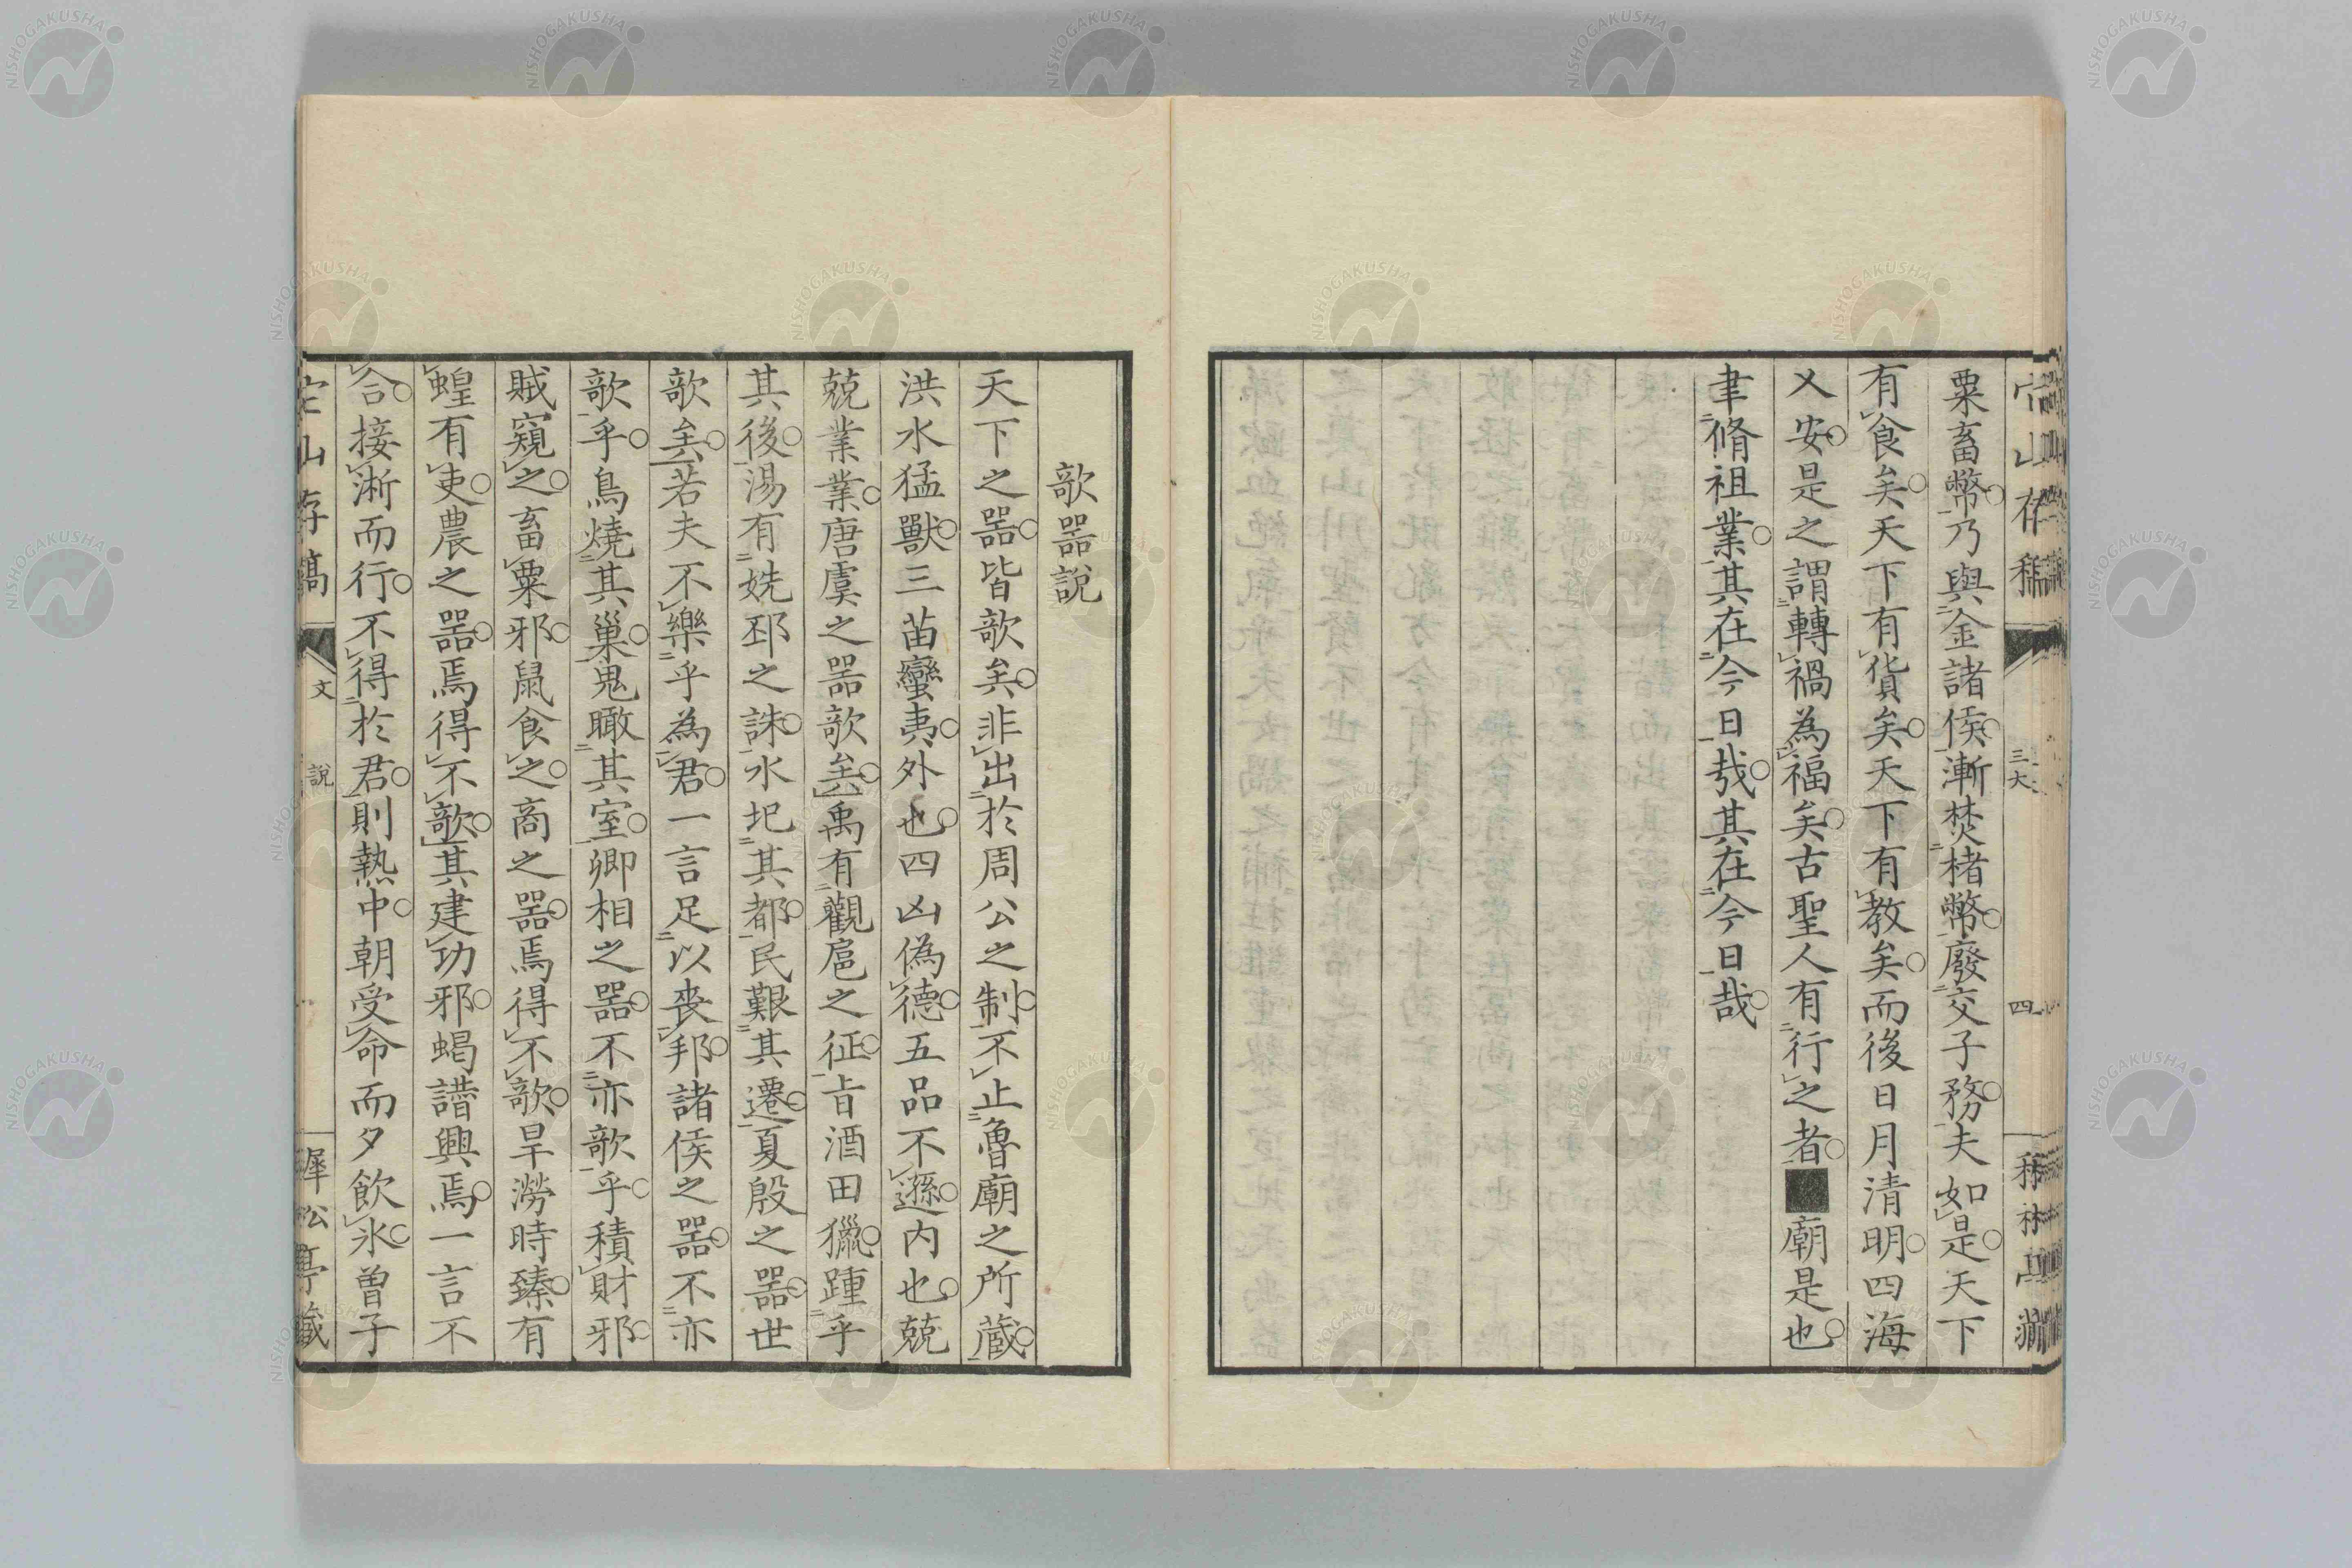 粟畜幣乃與金諸侯漸焚楮幣廢交子務夫如是天下
有食矣天下有貨矣天下有教矣而後日月清明四海
乂安是之謂轉禍為福矣古聖人有行之者■廟是也
聿脩祖業其在今日哉其在今日哉
欹器說
天下之器皆欹矣非出於周公之制不止魯廟之所藏
洪水猛獸三苗蠻夷外也四凶偽德五品不遜内也兢
兢業業唐虞之器欹矣禹有觀扈之征旨酒田獵踵乎
其後湯有姺邳之誅水圯其都民艱其遷夏殷之器世
欹矣若夫不樂乎為君一言足以喪邦諸侯之器不亦
欹乎鳥燒其巢鬼瞰其室卿相之器不亦欹乎積財邪
賊窺之畜粟邪鼠食之商之器焉得不欹旱澇時臻有
蝗有吏農之器焉得不欹其建功邪蝎譖興焉一言不
合接淅而行不得於君則熱中朝受命而夕飲氷曾子
宕山存稿
文
說
犀松亭藏
NISHOGAKUSHA